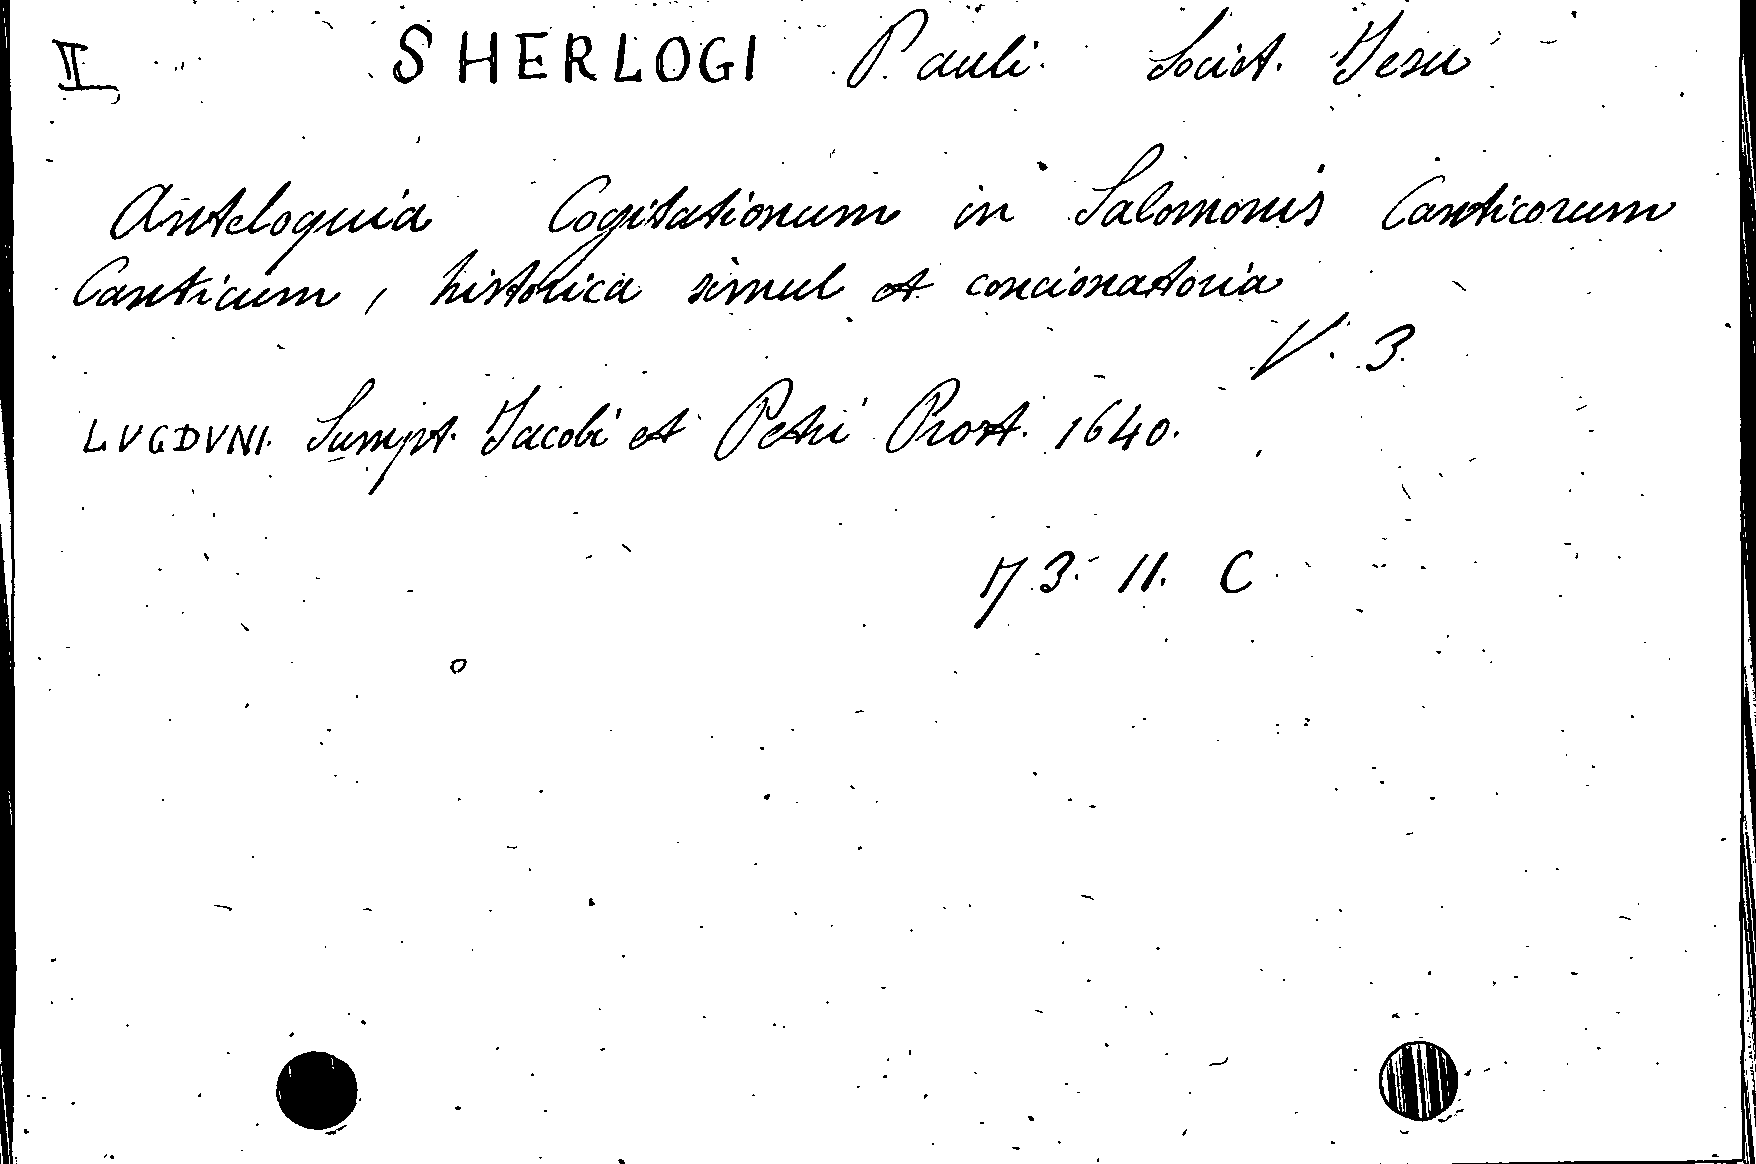 II SHERLOGI Pauli Sociot. Jesu
Anteloquia Cogitationum in Salomonis Canticorum
Canticum, historica simul et concionatoria
V. 3.
LVGDVNI. Sumpt. Jacobi et Petri Prost. 1640.
173. 11. C